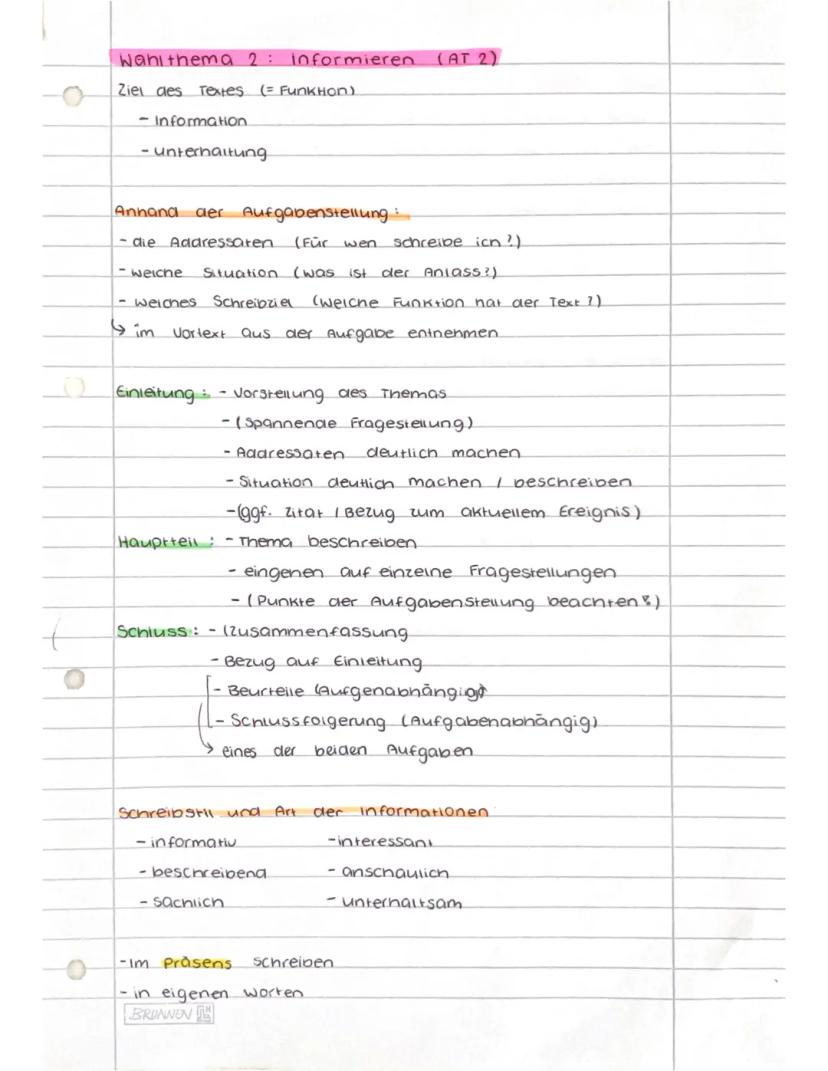 Wahlthema 2: Informieren (AT 2)
Ziel des Textes (= Funktion)
- Information
- unterhaltung
Anhand der Aufgabenstellung:
- die Addressaten (Für wen schreibe ich?)
- welche Situation (was ist der Anlass?)
- welches Schreibziel (welche Funktion hat der Text?)
↳ im Vortext aus der Aufgabe entnehmen
Einleitung: - Vorstellung des Themas
- (Spannende Fragestellung)
- Addressaten deutlich machen
- Situation deutlich machen / beschreiben
- (ggf. Zitat / Bezug zum aktuellem Ereignis)
Hauptteil: - Thema beschreiben
- eingehen auf einzelne Fragestellungen
- (Punkte der Aufgabenstellung beachten!)
Schluss: - (Zusammenfassung
- Bezug auf Einleitung
- Beurteile (Aufgenabhängig)
- Schlussfolgerung (Aufgabenabhängig)
↳ eines der beiden Aufgaben
Schreibstil und Art der Informationen
- informativ - interessant
- beschreibend - anschaulich
- sachlich - unterhaltsam
- Im Präsens schreiben
- in eigenen Worten
BRUNNEN